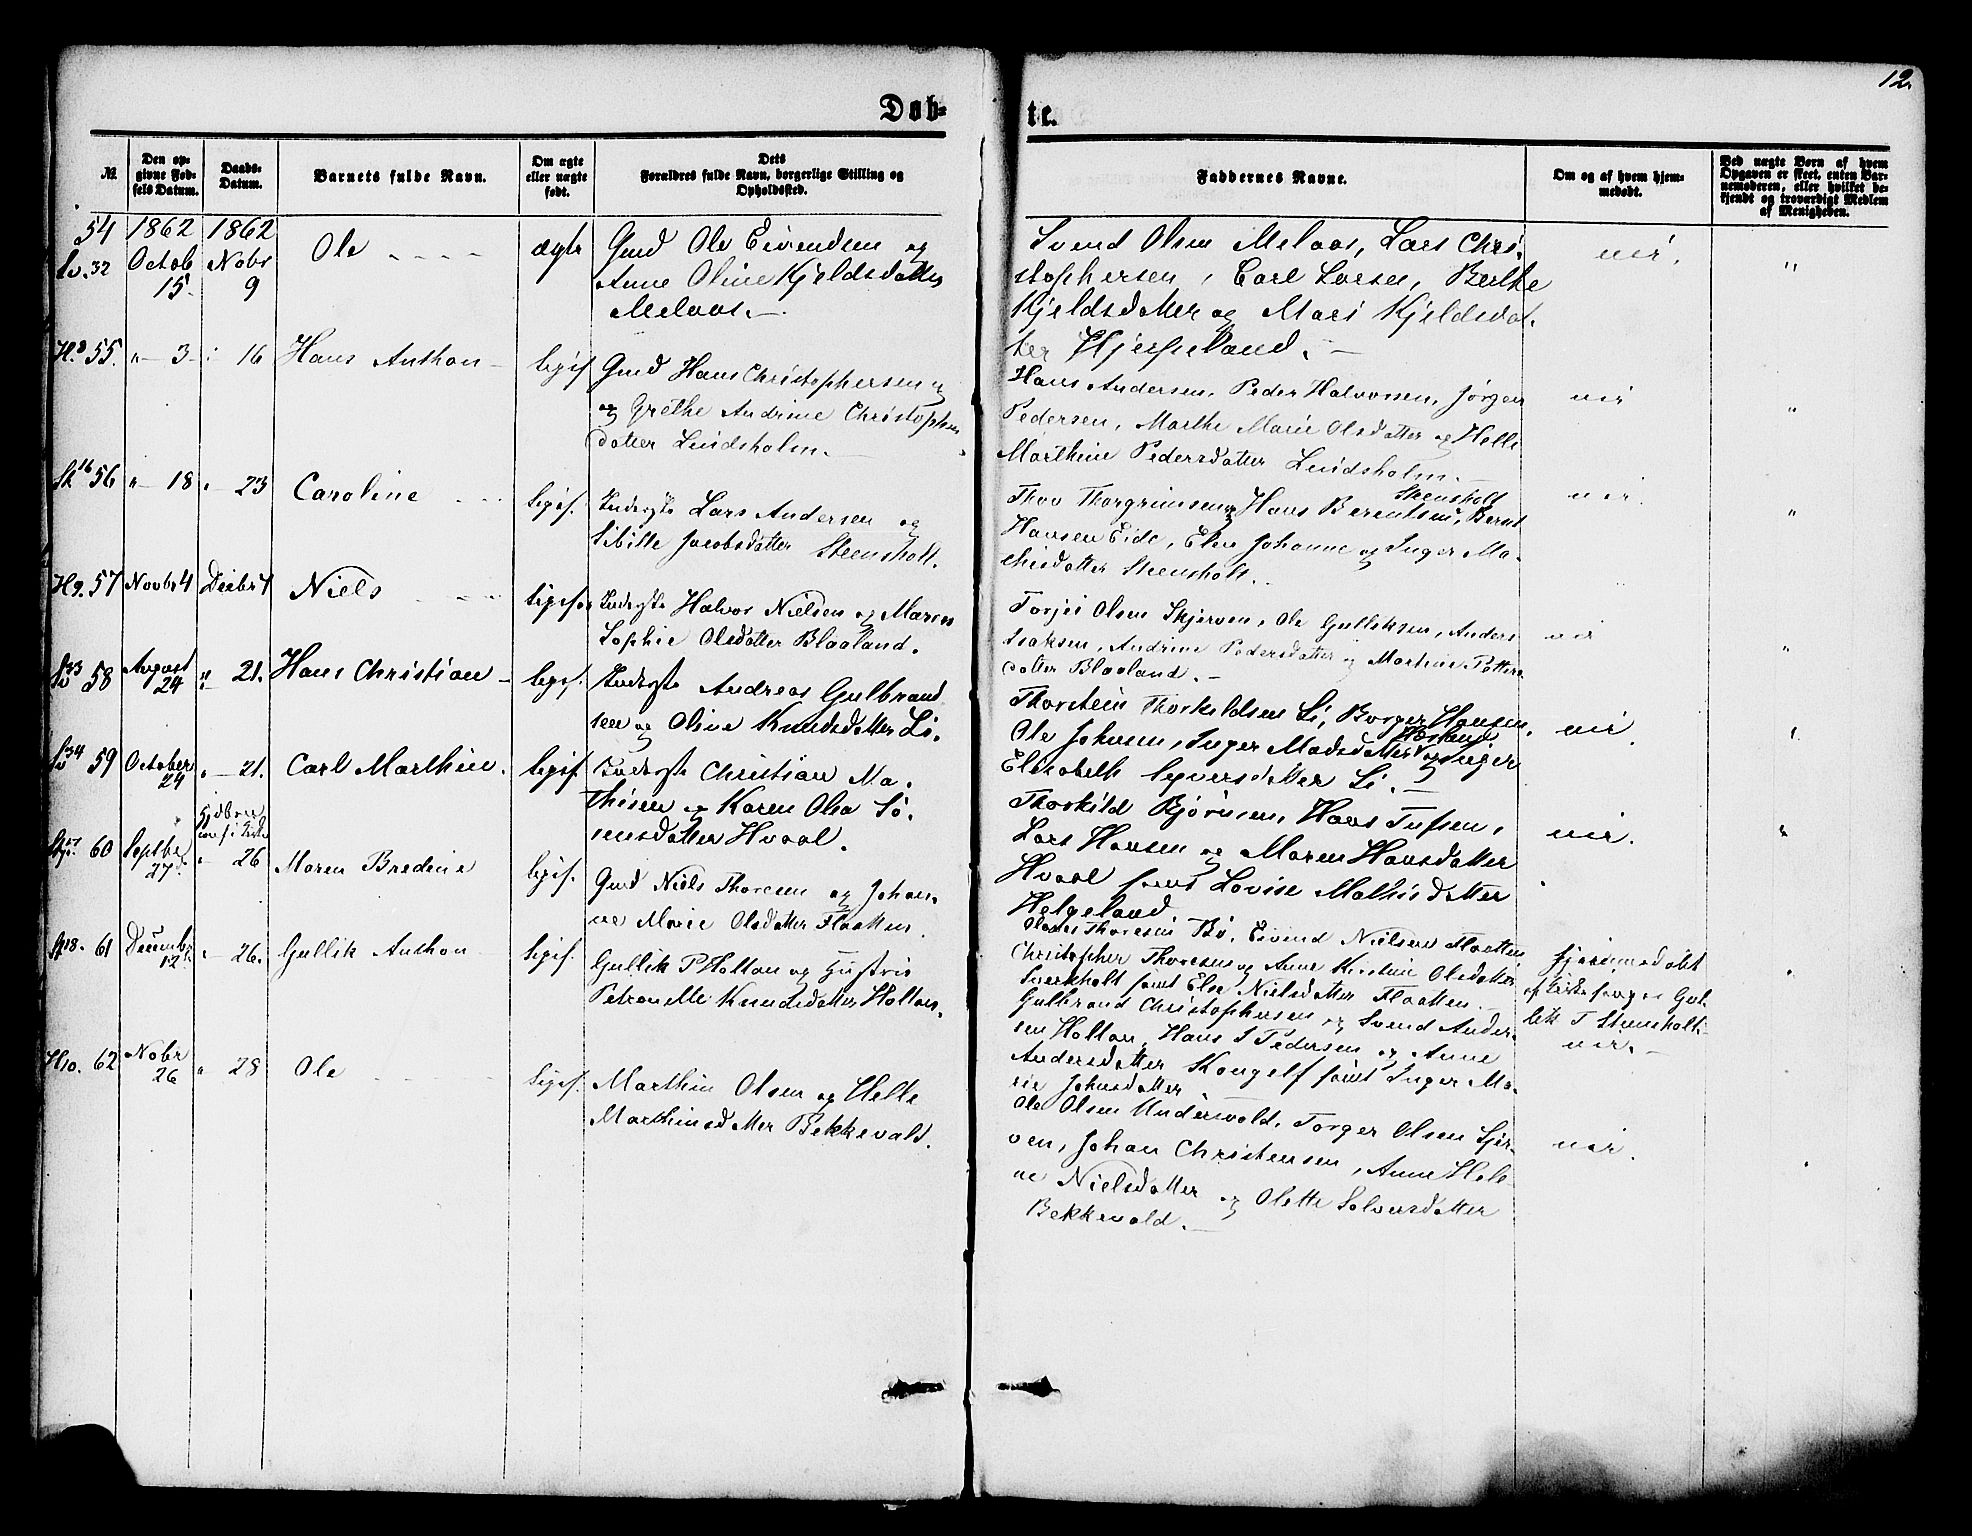 12.
Døb-
te.
№
Den op-
givne Fød-
sels Datum.
Daabs-
Datum.
Barnets fulde Navn.
Om ægte
eller uægte
født.
Dets
Forældres fulde Navn, borgerlige Stilling og
Opholdssted.
Faddernes Navne.
Om og af hvem hjem-
medøbt.
Ved uægte Børn af hvem
Opgaven er skeet, enten Bar-
nemoderen, eller hvilket be-
kjendt og troværdigt Medlem
af Menigheden.
54
Sv. 32
1862
Octob
15.
1862
Nobr
9
Ole
ægte
Gmd Ole Eivendsen og
Anne Oline Kjeldsdatter
Melaas.
Svend Olsen Melaas, Lars Chri-
stophersen, Carl Larsen, Berthe
Kjeldsdatter og Mari Kjeldsdat-
ter Hjerpeland.
nei.
"
H.8 55.
" 3
" 16
Hans Anthon
ligis.
Gmd Hans Christophersen
og Grethe Andrine Christophers
datter Lindsholm.
Hans Andersen, Peder Halvorsen, Jørgen
Pedersen, Marthe Marie Olsdatter og Helle
Marthine Pedersdatter Lindsholm.
nei
"
St 16 56
" 18
" 23
Caroline
ligis.
Inderste Lars Andersen og
Sibille Jacobsdatter Steensholt.
Thov Thorgrimsen og Hans Berentsen Steensholt, Bernt
Hansen Eide, Elen Johanne og Inger Ma-
thisdatter Steensholt.
nei.
"
H9. 57
Novbr 4
Decbr 7
Niels
ligis.
Inderste Halvor Nielsen og Maren
Sophie Olsdatter Blaaland.
Torjei Olsen Skjerven, Ole Gulliksen, Anders
Isaksen, Andrine Pedersdatter og Marthine Petters-
datter Blaaland.
nei
"
Sv 33 58
August
24
" 21.
Hans Christian
ligis.
Inderste Andreas Gulbrand
sen og Oline Knudsdatter Li.
Thorstein Thorkildsen Li, Borger Hansen,
Ole Johnsen, Inger Madsdatter og Inger
Elisabeth Syversdatter Li.
nei
"
Sv 34 59
October
24
" 21.
Carl Marthin.
ligis.
Inderste Christian Ma-
thisen og Karen Olea Si-
mensdatter Hvaal.
Thorkild Bjørnsen, Hans Tufsen,
Lars Hansen og Maren Hansdatter
Hvaal samt Lovise Mathisdatter
Helgeland.
nei.
"
60
Septbr
27
" 26
Maren Bredine
ligis.
Gmd Niels Thoresen og Johan-
ne Marie Olsdatter Flaatten.
Thoresen Bø, Eivend Nielsen Flaatten,
Christopher Thoresen og Anne Kirstine Olsdatter
Sverkholt samt Else Nielsdatter Flaatten.
St 18. 61
Decemb
12
" 26.
Gullik Anthon
ligis.
Gullik P Holtan og
Petronelle Knudsdatter Holtan.
Gulbrand Christophersen og Svend Ander-
sen Holtan, Hans S Pedersen og Anne
Andersdatter Kongelf samt Inger Ma-
rie Johnsdatter
hjemmedøbt
af Kirkesanger Gul-
lik T Steensholt
nei.
"
H10. 62
Nobr
26
" 28
Ole
ligis.
Marthin Olsen og Helle
Marthinsdatter Bekkevald.
Ole Olsen Undersvald, Torger Olsen Sjer-
ven, Johan Christensen, Anne Hele-
ne Nielsdatter og Olette Solversdatter
Bekkevold.
nei.